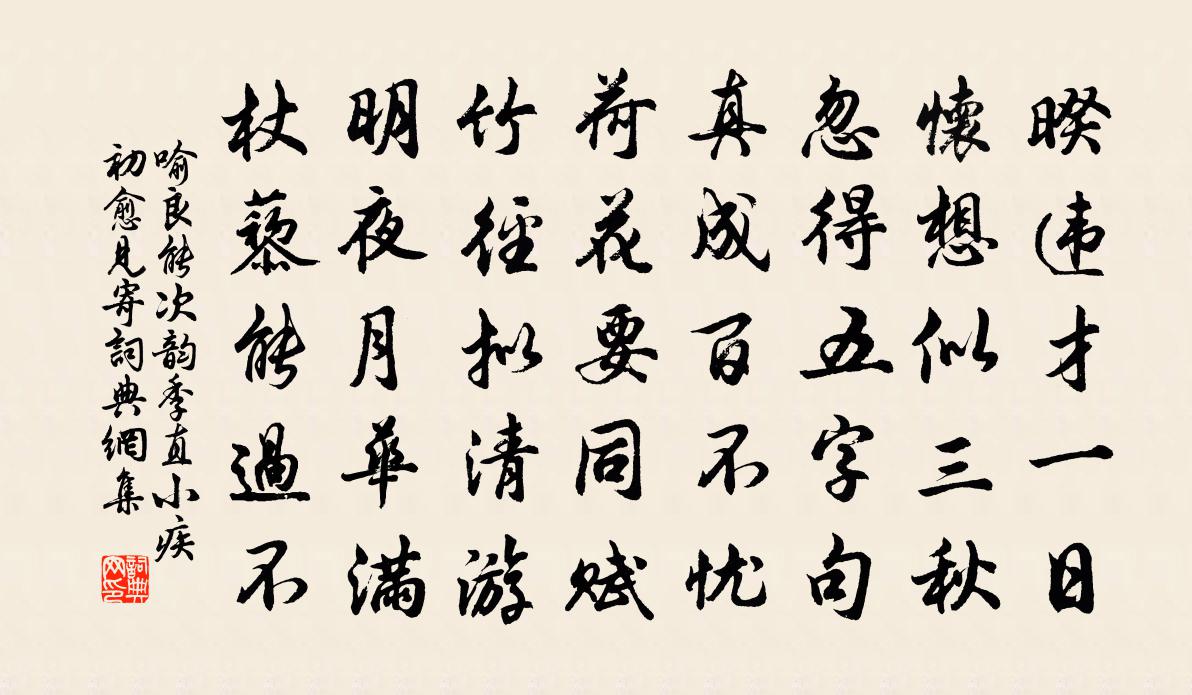 暌违才一日
懷想似三秋
忽得五字句
真成百不忧
荷花要同赋
竹徑拟清游
明夜月華满
杖藜能過不
喻良能次韵季直小疾
初愈見寄詞典網集
詞典网印